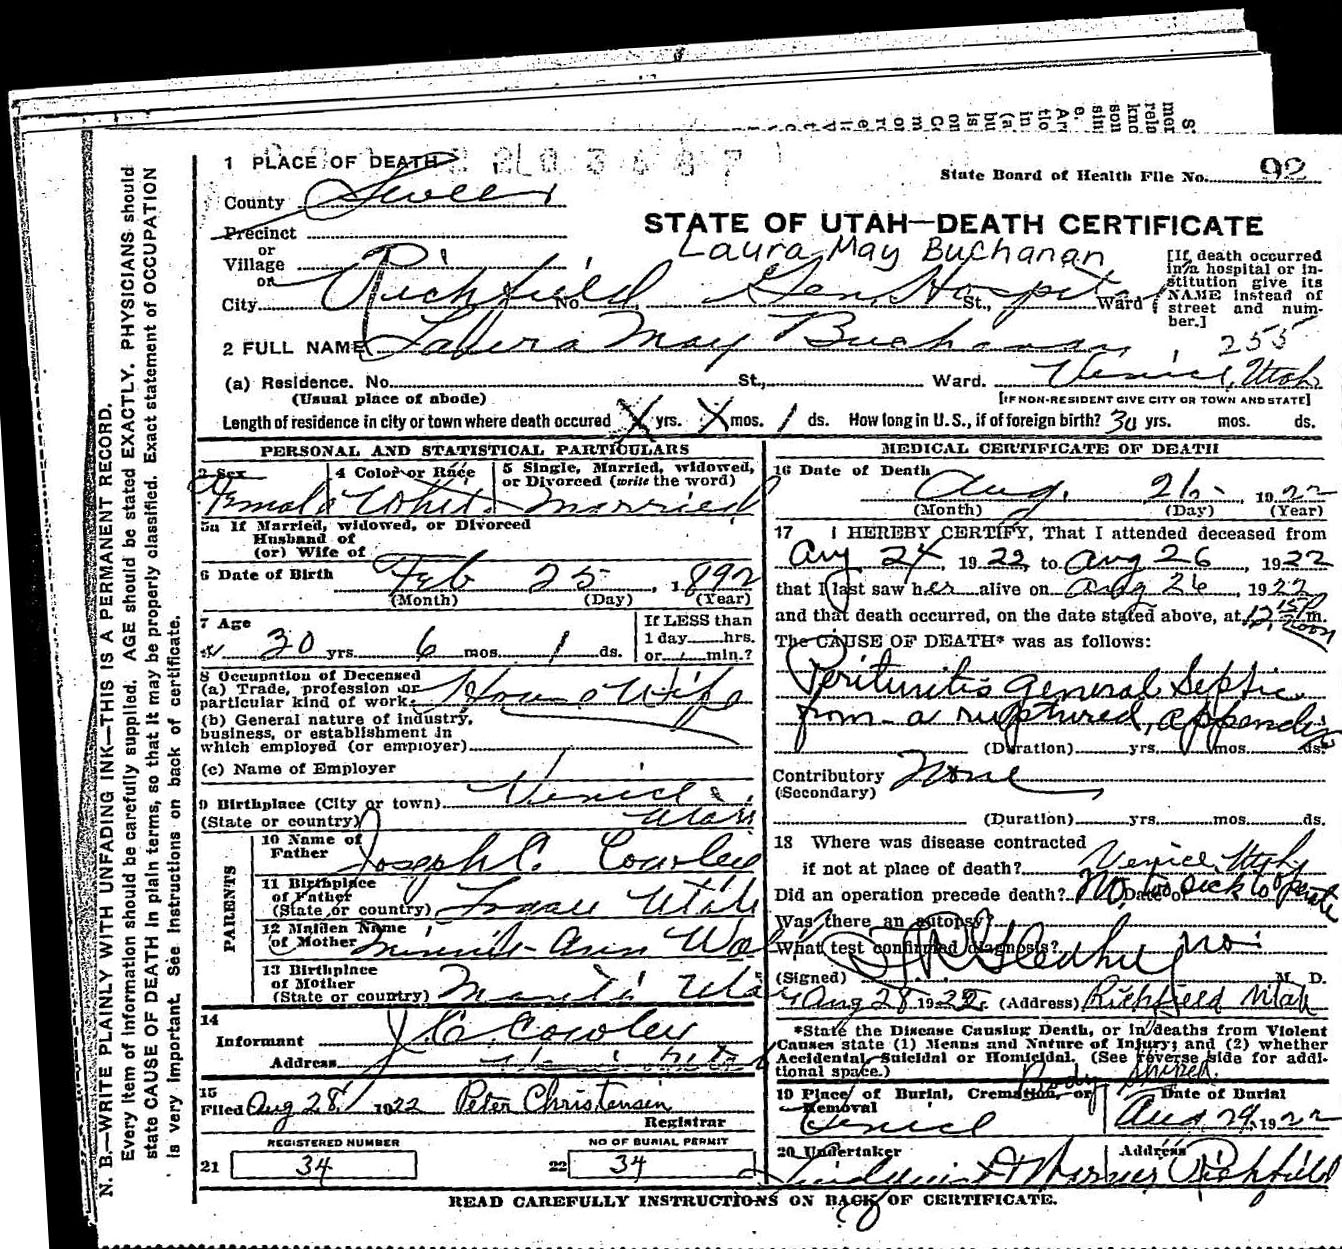 N. B.—WRITE PLAINLY WITH UNFADING INK—THIS IS A PERMANENT RECORD.
Every item of information should be carefully supplied. AGE should be stated EXACTLY. PHYSICIANS should
state CAUSE OF DEATH in plain terms, so that it may be properly classified. Exact statement of OCCUPATION
is very important. See instructions on back of certificate.
1 PLACE OF DEATH
State Board of Health File No. 92
County Sevier
STATE OF UTAH—DEATH CERTIFICATE
Precinct
Laura May Buchanan
or
Village
or
City Richfield No. Gen. Hospital St., Ward
[If death occurred in a hospital or institution give its NAME instead of street and number.]
2 FULL NAME Laura May Buchanan
255
(a) Residence. No. St., Ward. Venice, Utah
(Usual place of abode) [IF NON-RESIDENT GIVE CITY OR TOWN AND STATE]
Length of residence in city or town where death occured X yrs. X mos. 1 ds. How long in U.S., if of foreign birth? 30 yrs. mos. ds.
PERSONAL AND STATISTICAL PARTICULARS
3 Sex Female
4 Color or Race White
5 Single, Married, widowed, or Divorced (write the word) Married
5a If Married, widowed, or Divorced
Husband of
(or) Wife of
6 Date of Birth Feb 25, 1892
(Month) (Day) (Year)
7 Age 30 yrs. 6 mos. 1 ds.
If LESS than
1 day hrs.
or min.?
8 Occupation of Deceased
(a) Trade, profession or
particular kind of work. House Wife
(b) General nature of industry,
business, or establishment in
which employed (or employer)
(c) Name of Employer
9 Birthplace (City or town) Venice
(State or country) Utah
PARENTS
10 Name of
Father Joseph C. Cowley
11 Birthplace
of Father
(State or country) Logan Utah
12 Maiden Name
of Mother Minnie Ann
13 Birthplace
of Mother
(State or country) Manti Utah
14
Informant J. C. Cowley
Address Utah
15
Filed Aug 28, 1922 Peter Christensen
Registrar
REGISTERED NUMBER
21 34
NO OF BURIAL PERMIT
22 34
MEDICAL CERTIFICATE OF DEATH
16 Date of Death
Aug. 26 1922
(Month) (Day) (Year)
17 I HEREBY CERTIFY, That I attended deceased from
Aug 24, 1922, to Aug 26, 1922
that I last saw her alive on Aug 26, 1922
and that death occurred, on the date stated above, at 12 15 P m.
noon
The CAUSE OF DEATH* was as follows:
Peritunitis General Septic
from a ruptured appendix
(Duration) yrs. mos. ds.
Contributory None
(Secondary)
(Duration) yrs. mos. ds.
18 Where was disease contracted
if not at place of death? Venice, Utah
Did an operation precede death? No Date of too sick to operate
Was there an autopsy?
What test confirmed diagnosis? no
(Signed) M. D.
Aug 28, 1922, (Address) Richfield Utah
*State the Disease Causing Death, or in deaths from Violent
Causes state (1) Means and Nature of Injury; and (2) whether
Accidental, Suicidal or Homicidal. (See reverse side for additional space.)
Body Shiped.
19 Place of Burial, Cremation, or
Removal
Venice
Date of Burial
Aug 29, 1922
20 Undertaker
Address
Richfield
READ CAREFULLY INSTRUCTIONS ON BACK OF CERTIFICATE.